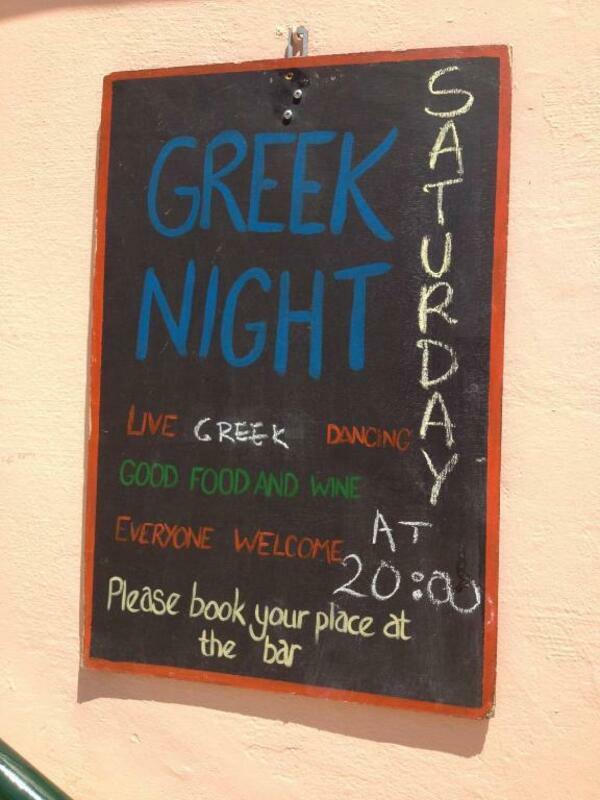 GREEK
NIGHT
SATURDAY
LIVE GREEK DANCING
GOOD FOOD AND WINE
EVERYONE WELCOME
AT
20:00
Please book your place at
the bar